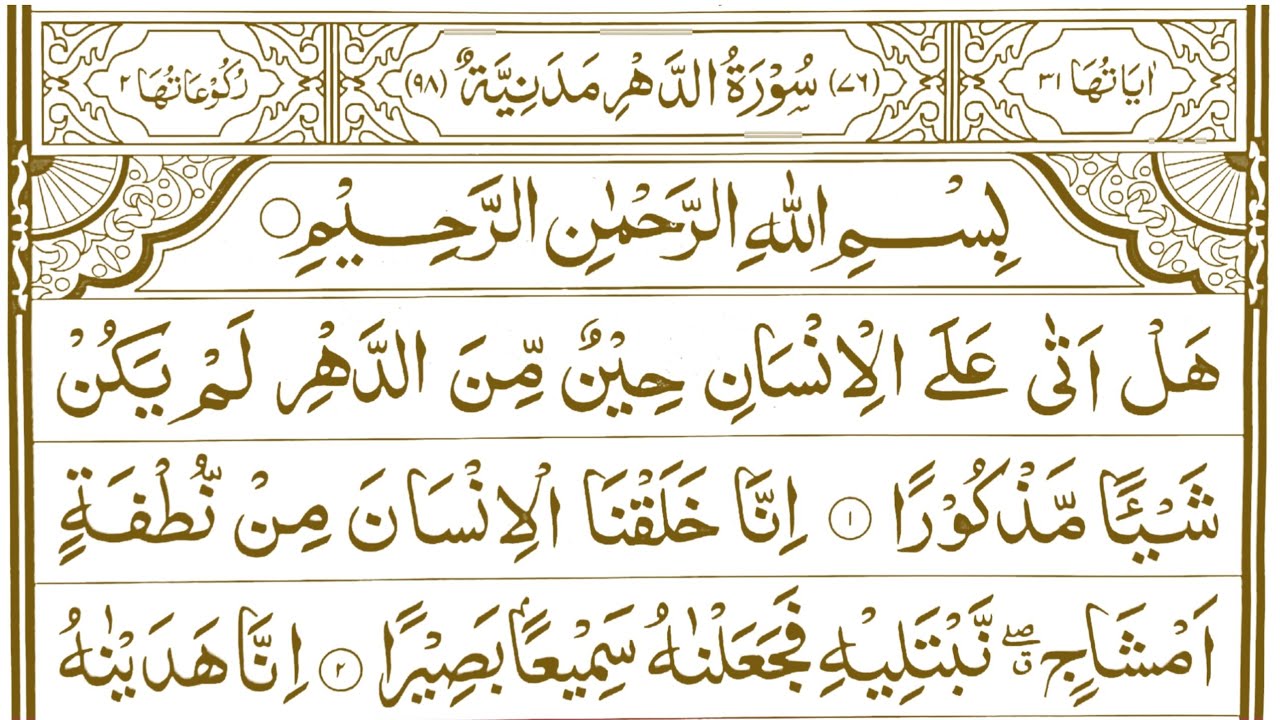 اٰيَاتُهَا ٣١ (٧٦) سُوْرَةُ الدَّهْرِ مَدَنِيَّةٌ (٩٨) رُكُوْعَاتُهَا ٢
بِسْمِ اللّٰهِ الرَّحْمٰنِ الرَّحِيْمِ ○
هَلْ اَتٰى عَلَى الْاِنْسَانِ حِيْنٌ مِّنَ الدَّهْرِ لَمْ يَكُنْ
شَيْـًٔا مَّذْكُوْرًا ① اِنَّا خَلَقْنَا الْاِنْسَانَ مِنْ نُّطْفَةٍ
اَمْشَاجٍ ۖق نَّبْتَلِيْهِ فَجَعَلْنٰهُ سَمِيْعًۢا بَصِيْرًا ② اِنَّا هَدَيْنٰهُ